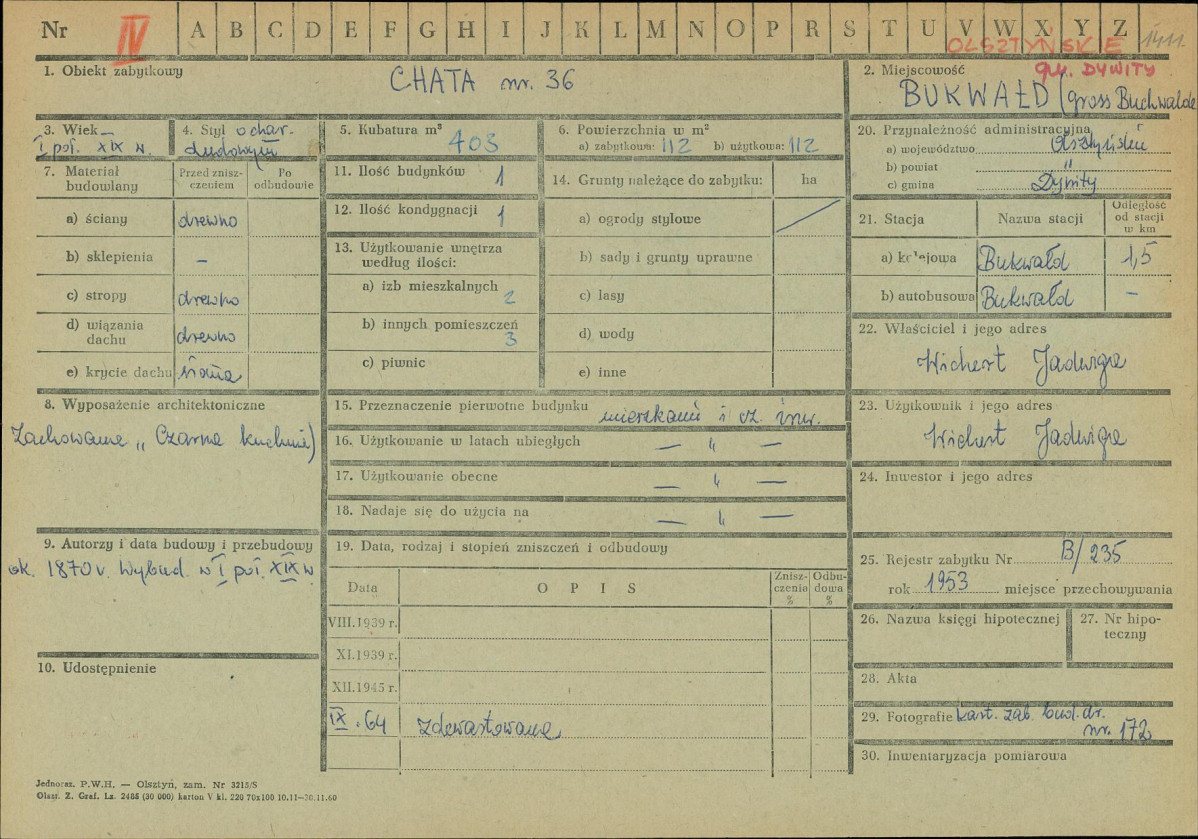 Nr IV A B C D E F G H I J K L M N O P R S T U V W X Y Z 1411.
OLSZTYŃSKIE
gm. DYWITY
1. Obiekt zabytkowy CHATA nr. 36
2. Miejscowość
BUKWAŁD (gross Buchwalde
3. Wiek
I poł. XIX w.
4. Styl o char.
ludowym
5. Kubatura m³ 403
6. Powierzchnia w m²
a) zabytkowa: 112 b) użytkowa: 112
7. Materiał
budowlany
Przed znisz-
czeniem
Po
odbudowie
a) ściany drewno
b) sklepienia –
c) stropy drewno
d) wiązania
dachu drewno
e) krycie dachu słoma
8. Wyposażenie architektoniczne
Zachowana „Czarna kuchnia)
9. Autorzy i data budowy i przebudowy
ok. 1870 r. Wybud. w I poł. XIX w
10. Udostępnienie
11. Ilość budynków 1
12. Ilość kondygnacji 1
13. Użytkowanie wnętrza
według ilości:
a) izb mieszkalnych 2
b) innych pomieszczeń 3
c) piwnic
14. Grunty należące do zabytku: ha
a) ogrody stylowe
b) sady i grunty uprawne
c) lasy
d) wody
e) inne
15. Przeznaczenie pierwotne budynku mieszkanie i cz. inw.
16. Użytkowanie w latach ubiegłych — „ —
17. Użytkowanie obecne — „ —
18. Nadaje się do użycia na — „ —
19. Data, rodzaj i stopień zniszczeń i odbudowy
Data O P I S
Znisz-
czenia
%
Odbu-
dowa
%
VIII.1939 r.
XI.1939 r.
XII.1945 r.
IX.64 zdewastowana
20. Przynależność administracyjna
a) województwo Olsztyńskie
b) powiat "
c) gmina Dywity
21. Stacja Nazwa stacji
Odległość
od stacji
w km
a) kolejowa Bukwałd 1,5
b) autobusowa Bukwałd –
22. Właściciel i jego adres
Wichert Jadwiga
23. Użytkownik i jego adres
Wichert Jadwiga
24. Inwestor i jego adres
25. Rejestr zabytku Nr B/235
rok 1953 miejsce przechowywania
26. Nazwa księgi hipotecznej
27. Nr hipo-
teczny
28. Akta
29. Fotografie kart. zab. bud. dr.
nr. 172
30. Inwentaryzacja pomiarowa
Jednoraz. P.W.H. — Olsztyn, zam. Nr 3215/S
Olszt. Z. Graf. Lz. 2486 (30 000) karton V kl. 220 70x100 10.11—30.11.60